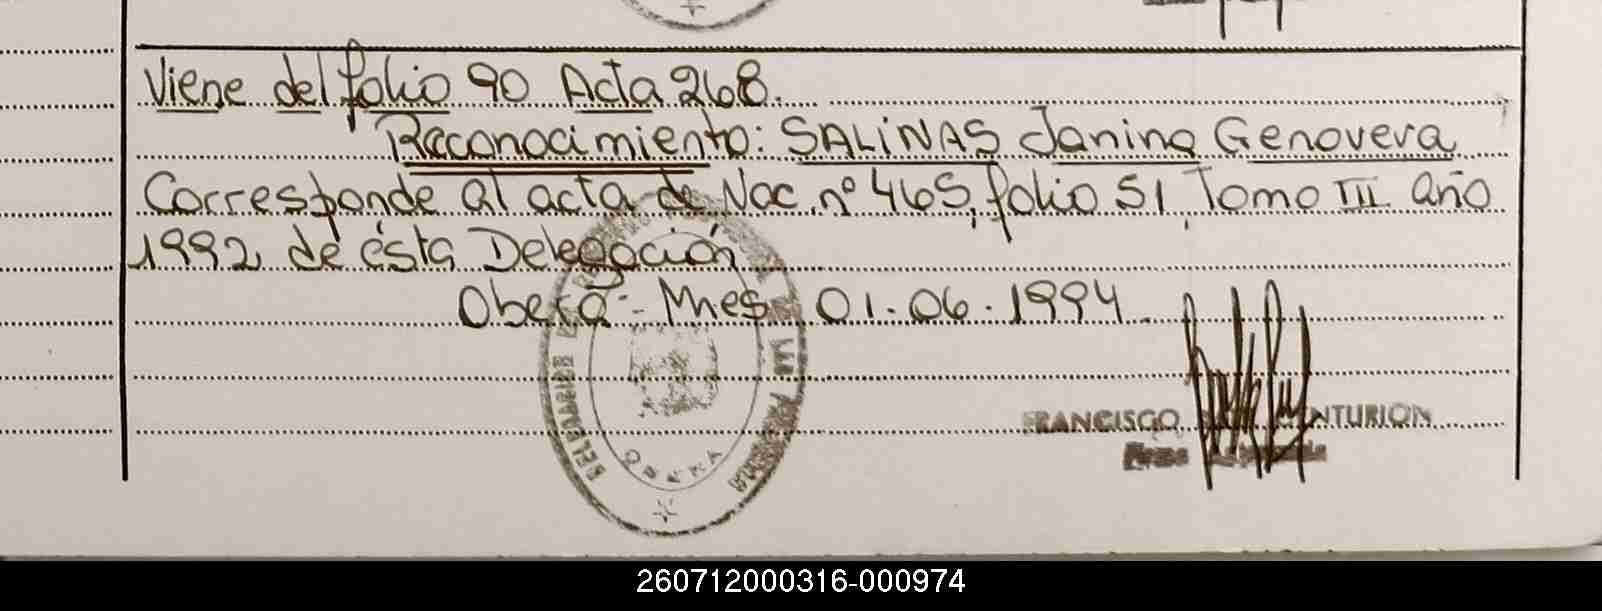 Viene del folio 90 Acta 268.
Reconocimiento: SALINAS Janina Genovera
Corresponde al acta de Nac. nº 465, folio 51, Tomo III año
1992 de ésta Delegación
Oberá - Mnes 01.06.1994
FRANCISCO
DELEGACION
LAS PERSONAS
OBERA
260712000316-000974